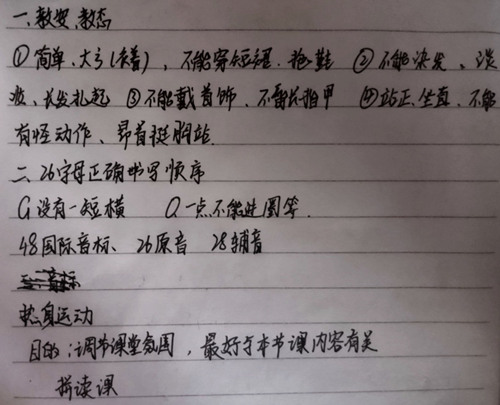 一、教姿、教态
①简单、大方(衣着),不能穿短裙、拖鞋 ②不能染发、淡
妆、长发扎起 ③不能戴首饰、不留长指甲 ④站正、坐直、不能
有怪动作、昂首挺胸站.
二、26字母正确书写顺序
G没有一短横 Q一点不能进圆竿.
48国际音标、26原音 28辅音
热身运动
目的:调节课堂氛围,最好与本节课内容有关
拼读课